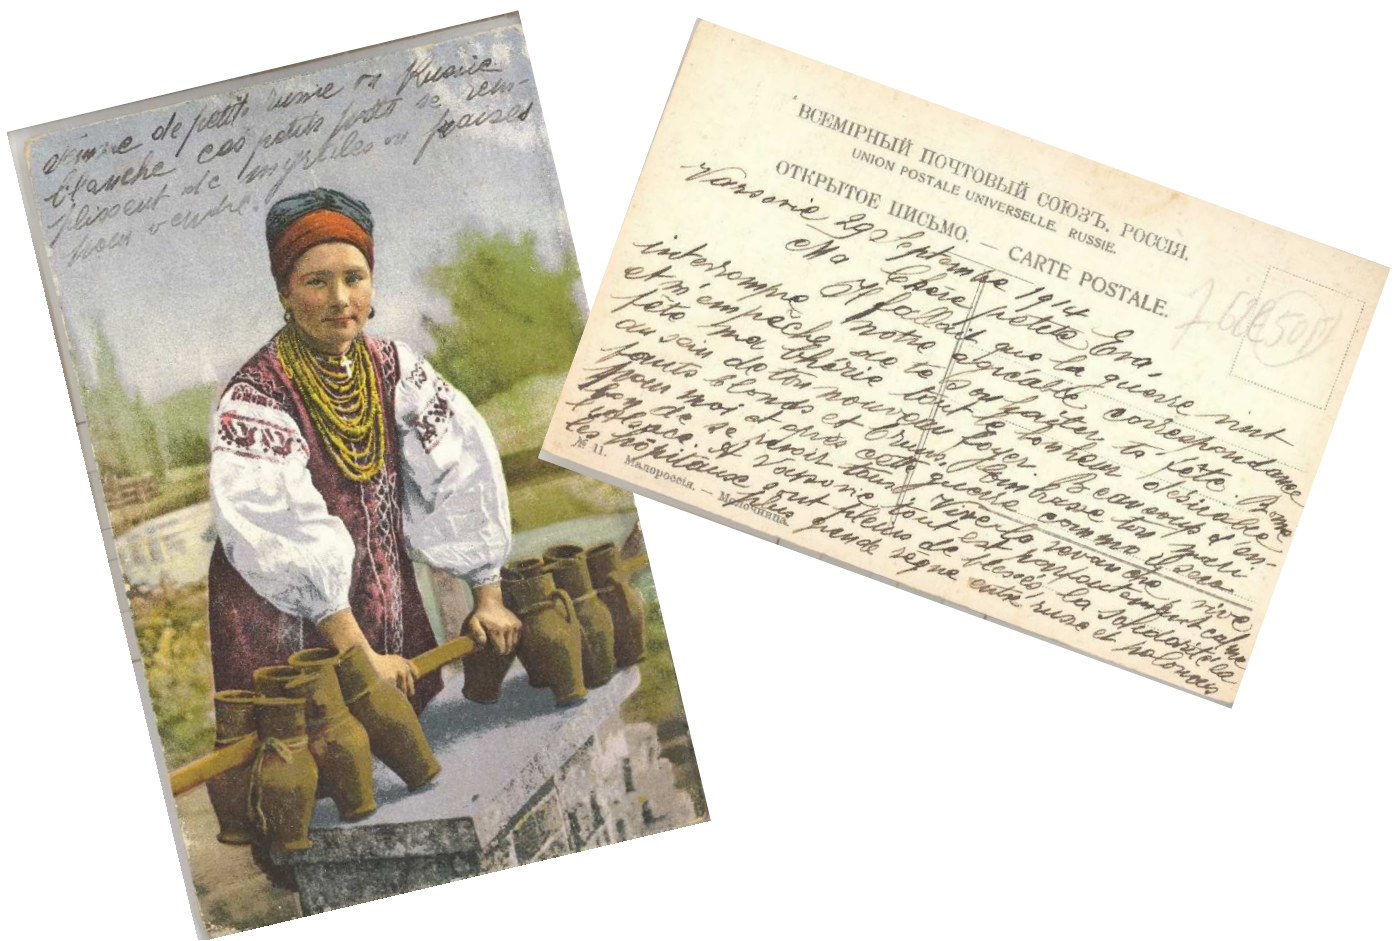 femme de petite russie ou Russie
blanche ces petits pots se rem-
plissent de myrtiles ou fraises
pour vendre.
ВСЕМІРНЫЙ ПОЧТОВЫЙ СОЮЗЪ. РОССІЯ.
UNION POSTALE UNIVERSELLE. RUSSIE.
ОТКРЫТОЕ ПИСЬМО. — CARTE POSTALE.
Varsovie 29 Septembre 1914
Ma Chère petite Eva,
Il fallait que la guerre vint
interrompre notre agréable correspondance
et m'empêche de te souhaiter ta fête. Bonne
fête ma chérie tout le bonheur désirable
au sein de ton nouveau foyer. Beaucoup d'en-
fants blonds et bruns. Embrasse ton mari
pour moi et après cette guerre comme
bon de se revoir tous. Vive la revanche vive
la France. A Varsovie tout est calme
les hôpitaux sont pleins de blessés, la solidarité la
plus grande règne entre russe et polonais
№ 11. Малороссія. — Молочница.